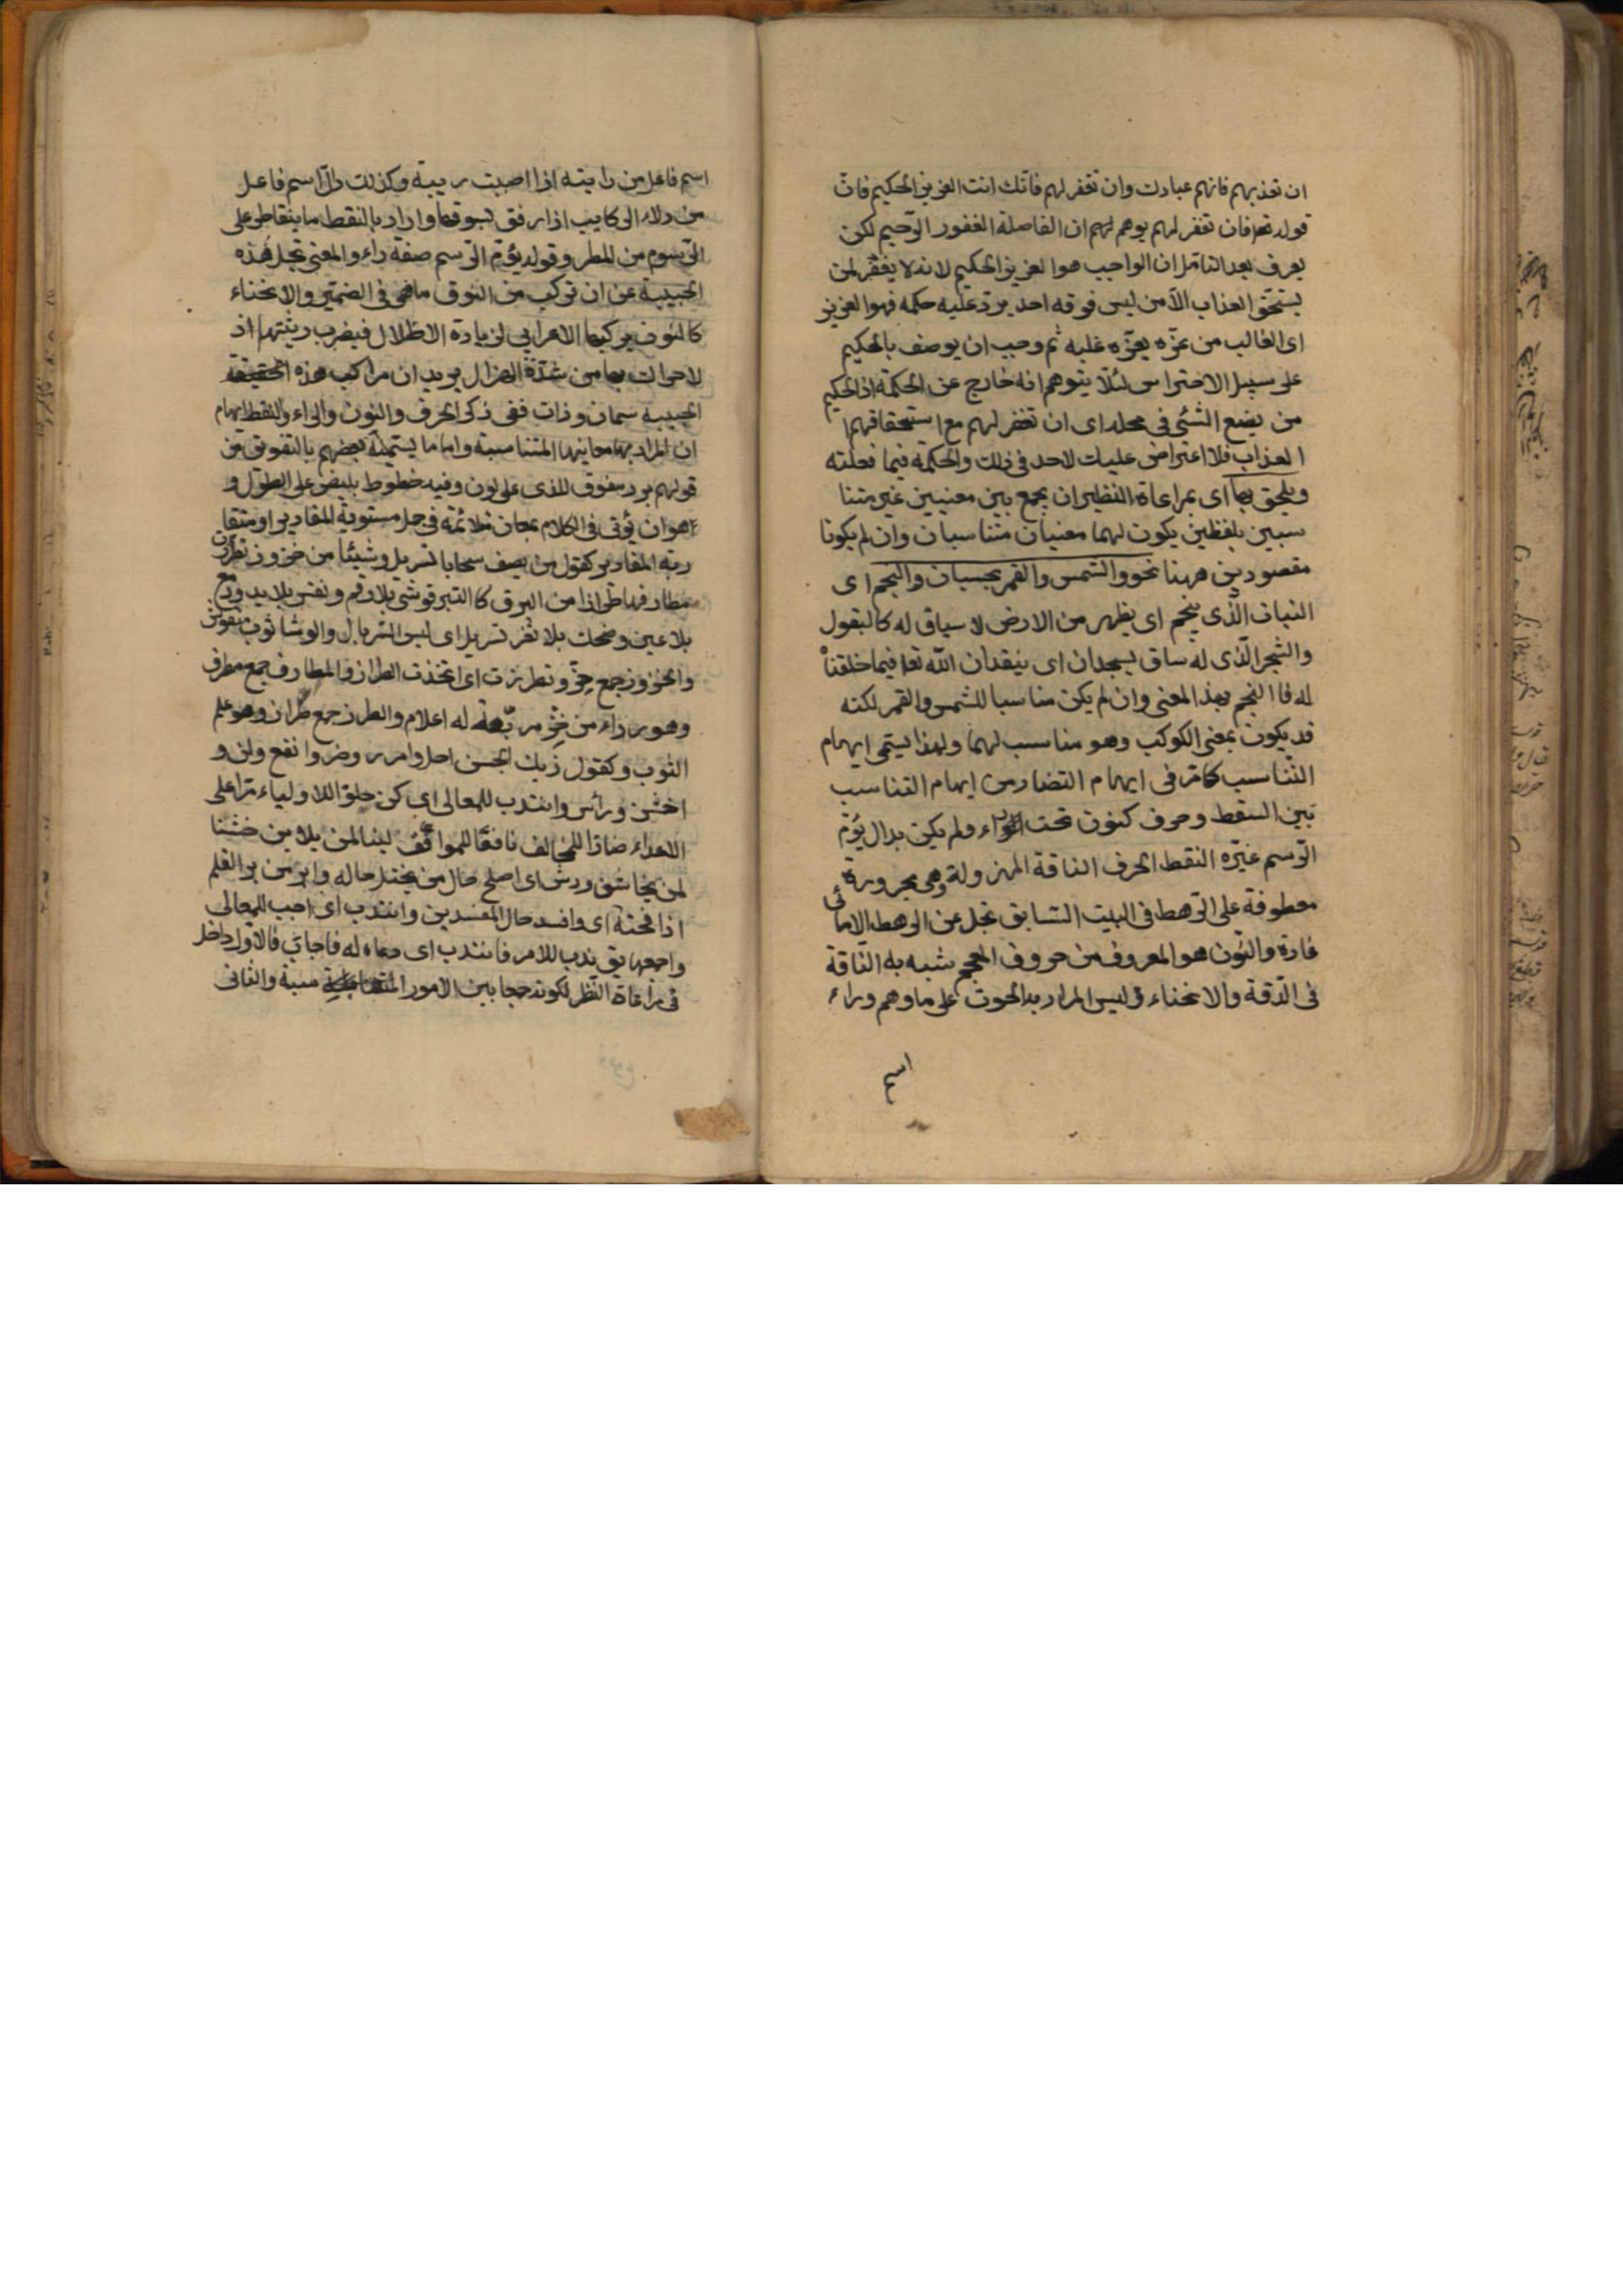 ان تعذبهم فانهم عبادك وان تغفر لهم فانّك انت العزيز الحكيم فانّ
قوله تعا فان تغفر لهم يوهم لهم ان الفاصلة الغفور الرّحيم لكن
يعرف بعد التامّل ان الواجب هو العزيز الحكيم لانه لا يغفر لمن
يستحّق العذاب الّا من ليس فوقه احد يردّ عليه حكمه فهو العزيز
اى الغالب من عزّه يعزّه غلبه ثم وجب ان يوصف بالحكيم
على سبيل الاحتراس لئلّا يتوهم انه خارج عن الحكمة اذ الحكيم
من يضع الشئ فى محله اى ان تغفر لهم مع استحقاقهم
العذاب فلا اعتراض عليك لاحد فى ذلك والحكمة فيما فعلته
ويلحق بها اى بمراعاة النظير ان يجمع بين معنيين غير متنا
سبين بلفظين يكون لهما معنيان متناسبان وان لم يكونا
مقصودين ههنا نحو والشمس والقمر بحسبان والنجم اى
النبات الّذى ينجم اى يظهر من الارض لا سياق له كالبقول
والشجر الّذى له ساق يسجدان اى ينقدان اللّه تعا فيما خلقنا
له فا النجم بهذا المعنى وان لم يكن مناسبا للشمس والقمر لكنّه
قد يكون بمعنى الكوكب وهو مناسب لهما ولهذا يسمّى ايهام
التناسب كما مّر فى ايهام التضاد من ايهام التناسب
بين السقط وحرف كنون تحت راء ولم يكن بدال يؤمّ
الرّسم غيّره النقط الحرف الناقة المهزولة وهى مجرورة
معطوفة على الرّهط فى البيت السّابق تجل عن الرهط الامائى
غادة والنّون هو المعروف من حروف المعجم شبه به النّاقة
فى الدّقة والانحناء وليس المراد به الحوت على ما وهم وراء
اسم
اسم فاعل من رايته اذا اصبت ريبته وكذلك دالّ اسم فاعل
من دلاء الركايب اذا رفق بسوقها واراد بالنقط ما يتقاطر على
الرّسوم من المطر وقوله يؤمّ الرّسم صفة راء والمعنى تجل هذه
الحبيبة عن ان تركب من النوق ماهى فى الضمّر والانحناء
كالنون يركبها الاعرابى لزيادة الاطلال فيضرب ريتها اذ
لاحراك بها من شدّة الهزال يريد ان مراكب هذه
الحبيبة سمان وذات ففى ذكر الحرف والنون والراء والنقط ايهام
ان المراد بها معانيها المتناسبة واما ما يسميّه بعضهم بالتفويق من
قولهم برد مفوق للذى على لون وفيه خطوط بليض على الطول و
هو ان يؤتى فى الكلام بمعان متلائمة فى جمل مستوية المقادير او متقا
ربة المقادير كقول من يصف سحابا تسربل وشيئا من خزوز تطرزت
مطارفها طرازا من البرق كالتبر فوشى بلا رقم ونقش بلا يد ودمع
بلا عين وضحك بلا ثغر تسربل اى لبس السربال والوشا ثوب منقوش
والخزوز جمع خزّ وتطرزت اى اتخذت الطراز والمطارف جمع مطرف
وهو رداء من خزّ مربّعة له اعلام والطرز جمع طراز وهو علم
الثوب وكقول زيك الجسن احل وامرر وضر وانفع ولن و
اخشن ورأس وانتدب للمعالى اى كن حلو اللاولياء مرّا على
الاعداء ضارّا للمخالف نافعّا للموافق لينا لمن يلاين خشنا
لمن يخاشن ورش اى اصلح حال من يختل حاله وابر من بر القلم
اذا نحته اى وافسد حال المفسدين وانتدب اى اجب للمعالى
واجمعها يق ندب للامر فانتدب اى دعاه له فاجاب فالاوّل داخل
فى مراعاة النظر لكونه جمعا بين الامور المتناسبة والثانى